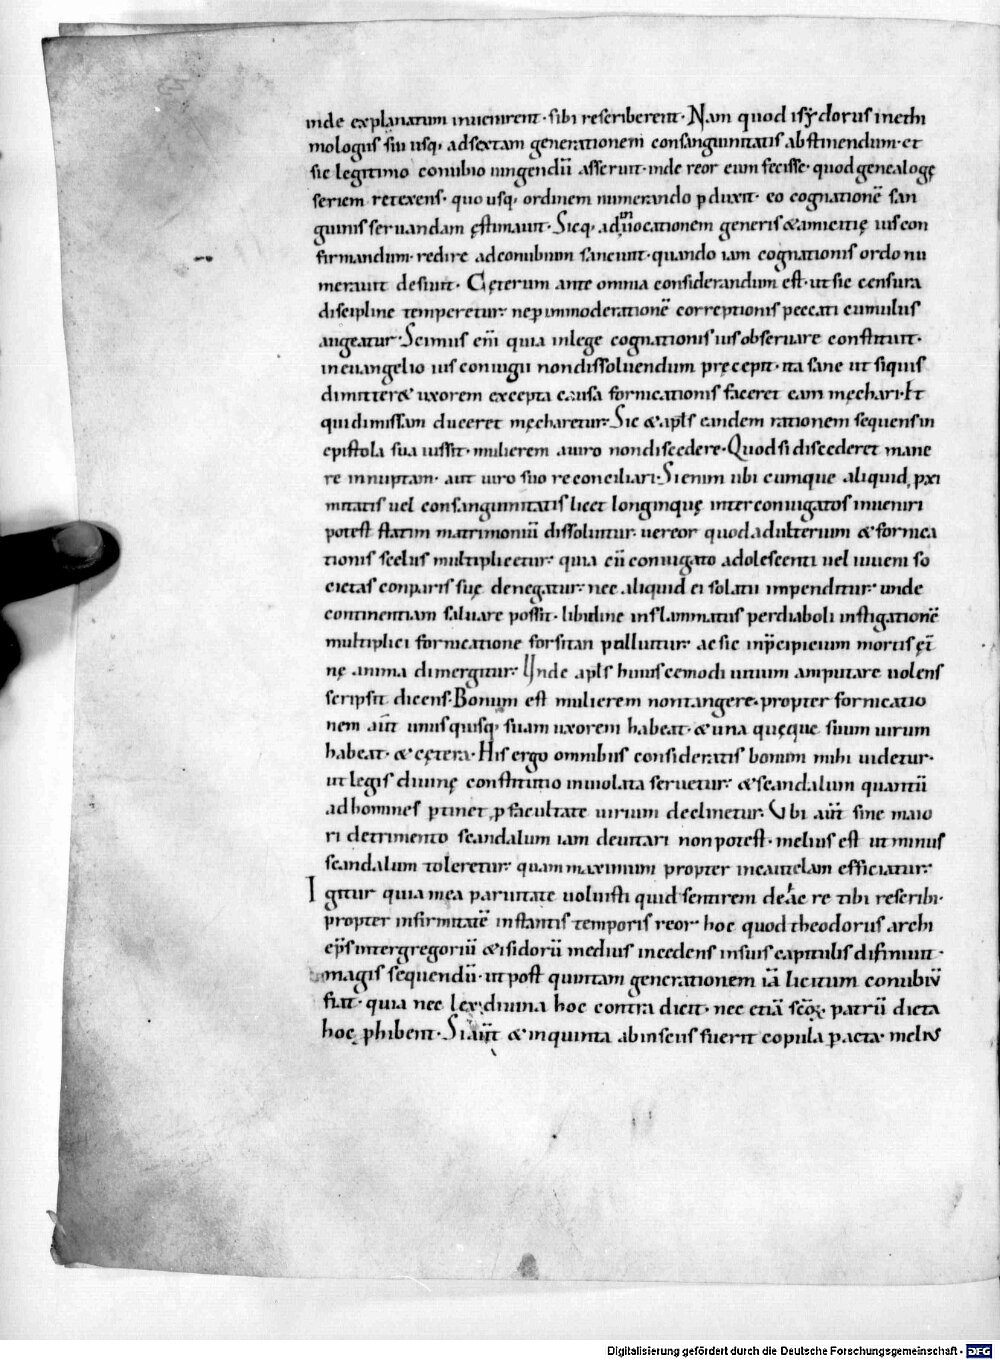 inde explanatum inuenirent· sibi rescriberent· Nam quod isẏdorus inethi
mologiis sui usq; adsextam generationem consanguinitatis abstinendum· et
sic legitimo conubio iungendū asserunt· inde reor eum fecisse· quod genealogę
seriem retexens· quo usq; ordinem numerando ꝑduxit· eo cognationē san
guinis seruandam ęstimauit· Sicq; ad uocationem generis & amicitię ius con
firmandum· redire adconubium sanciunt· quando iam cognationis ordo nu
merauit desiuit· Cęterum ante omnia considerandum est· ut sic censura
discipline temperetur· ne ꝑ immoderationē correptionis peccati cumulus
augeatur· Scimus em̄ quia inlege cognationis ius obseruare constituit·
ineuangelio ius coniugii nondissoluendum pręcepit· ita sane ut siquis
dimitter& uxorem excepta causa fornicationis faceret eam męchari· Et
quidimissam duceret męcharetur· Sic & apl̄s eandem rationem sequens in
epistola sua iussit· mulierem auiro nondiscedere· Quodsi discederet mane
re innuptam· aut uiro suo reconciliari· Si enim ubi cumque aliquid ꝓxi
mitatis uel consanguinitatis licet longinquę inter coniugatos inueniri
potest statim matrimoniū dissoluitur· uereor quod adulterium & fornica
tionis scelus multiplicetur· quia cū coniugato adolescenti uel iuueni so
cietas conparis suę denegatur· nec aliquid ei solatii impenditur· unde
continentiam saluare possit· libidine inflammatus perdiaboli instigationē
multiplici fornicatione forsitan polluitur· ac sic inp̄cipicium mortis ęt̄
nę anima dimergitur· Unde apl̄s huius cemodi uitium amputare uolens
scripsit dicens· Bonum est mulierem nontangere· propter fornicatio
nem aūt unus quisq; suam uxorem habeat· & una quęque suum uirum
habeat· & cętera· His ergo omnibus consideratis bonum mihi uidetur·
ut legis diuinę constitutio inuiolata seruetur· & scandalum quantū
ad homines ꝑtinet ꝓ facultate uirium declinetur· Ubi aūt sine maio
ri detrimento scandalum iam deuitari non potest· melius est ut minus
scandalum toleretur· quam maximum propter incautelam efficiatur·
Igitur quia mea paruitate uoluisti quid sentirem de hac re tibi rescribi·
propter infirmitatē instantis temporis reor hoc quod theodorus archi
ep̄s inter gregoriū & isidorū medius incedens insuis capitulis difiniuit·
magis sequendū· ut post quintam generationem iā licitum conubiū
fiat· quia nec lex diuina hoc contra dicit· nec etiā scōꝝ patrū dicta
hoc ꝓhibent· Si aūt & inquinta abinsciis fuerit copula ꝑacta· melius
Digitalisierung gefördert durch die Deutsche Forschungsgemeinschaft - DFG